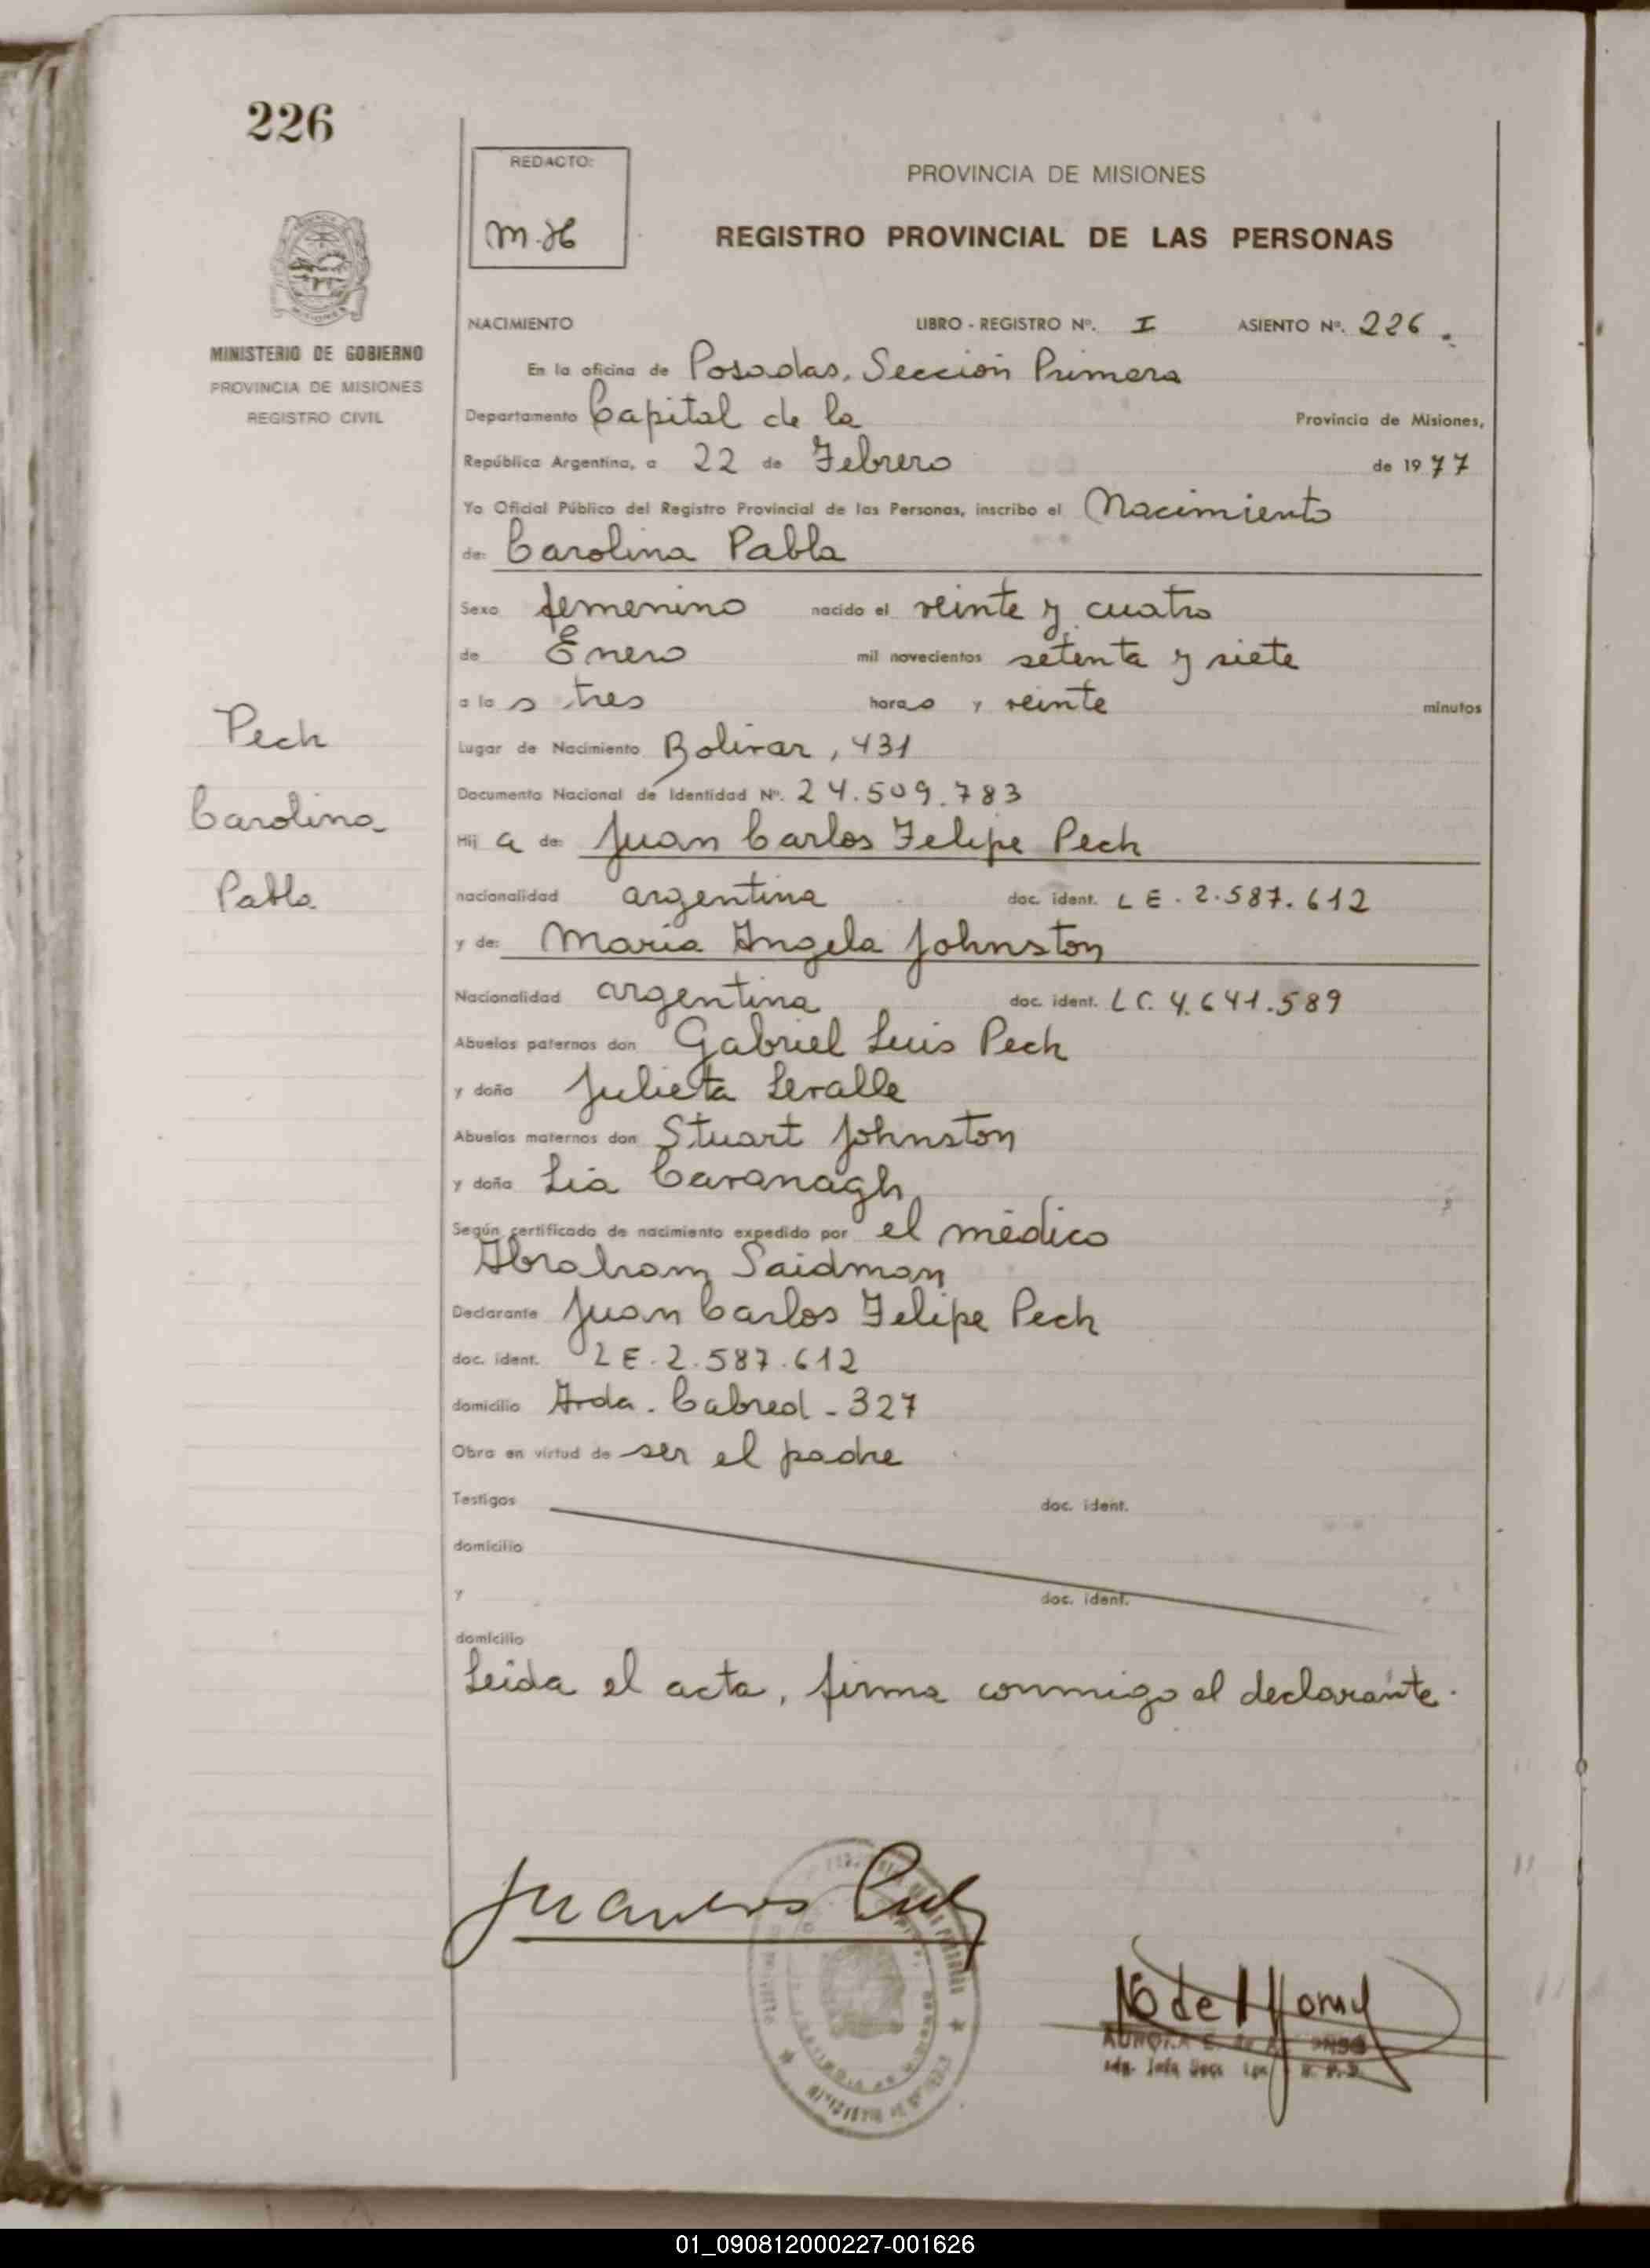 226
REDACTO:
M.H
PROVINCIA DE MISIONES
REGISTRO PROVINCIAL DE LAS PERSONAS
MISIONES
MINISTERIO DE GOBIERNO
PROVINCIA DE MISIONES
REGISTRO CIVIL
NACIMIENTO LIBRO - REGISTRO Nº. I ASIENTO Nº. 226.
En la oficina de Posadas, Sección Primera
Departamento Capital de la Provincia de Misiones,
República Argentina, a 22 de Febrero de 1977
Yo Oficial Público del Registro Provincial de las Personas, inscribo el Nacimiento
de: Carolina Pabla
Sexo femenino nacido el veinte y cuatro
de Enero mil novecientos setenta y siete
a las tres horas y veinte minutos
Lugar de Nacimiento Bolivar, 431
Documento Nacional de Identidad Nº. 24.509.783
Hija de: Juan Carlos Felipe Pech
nacionalidad argentina doc. ident. LE. 2.587.612
y de: Maria Angela Johnston
Nacionalidad argentina doc. ident. LC. 4.641.589
Abuelos paternos don Gabriel Luis Pech
y doña Julieta Levalle
Abuelos maternos don Stuart Johnston
y doña Lia Cavanagh
Según certificado de nacimiento expedido por el médico
Abraham Saidman
Declarante Juan Carlos Felipe Pech
doc. ident. LE. 2.587.612
domicilio Avda. Cabred - 327
Obra en virtud de ser el padre
Testigos doc. ident.
domicilio
y doc. ident.
domicilio
Leida el acta, firma conmigo el declarante.
Pech
Carolina
Pabla
AURORA E. de
01_090812000227-001626